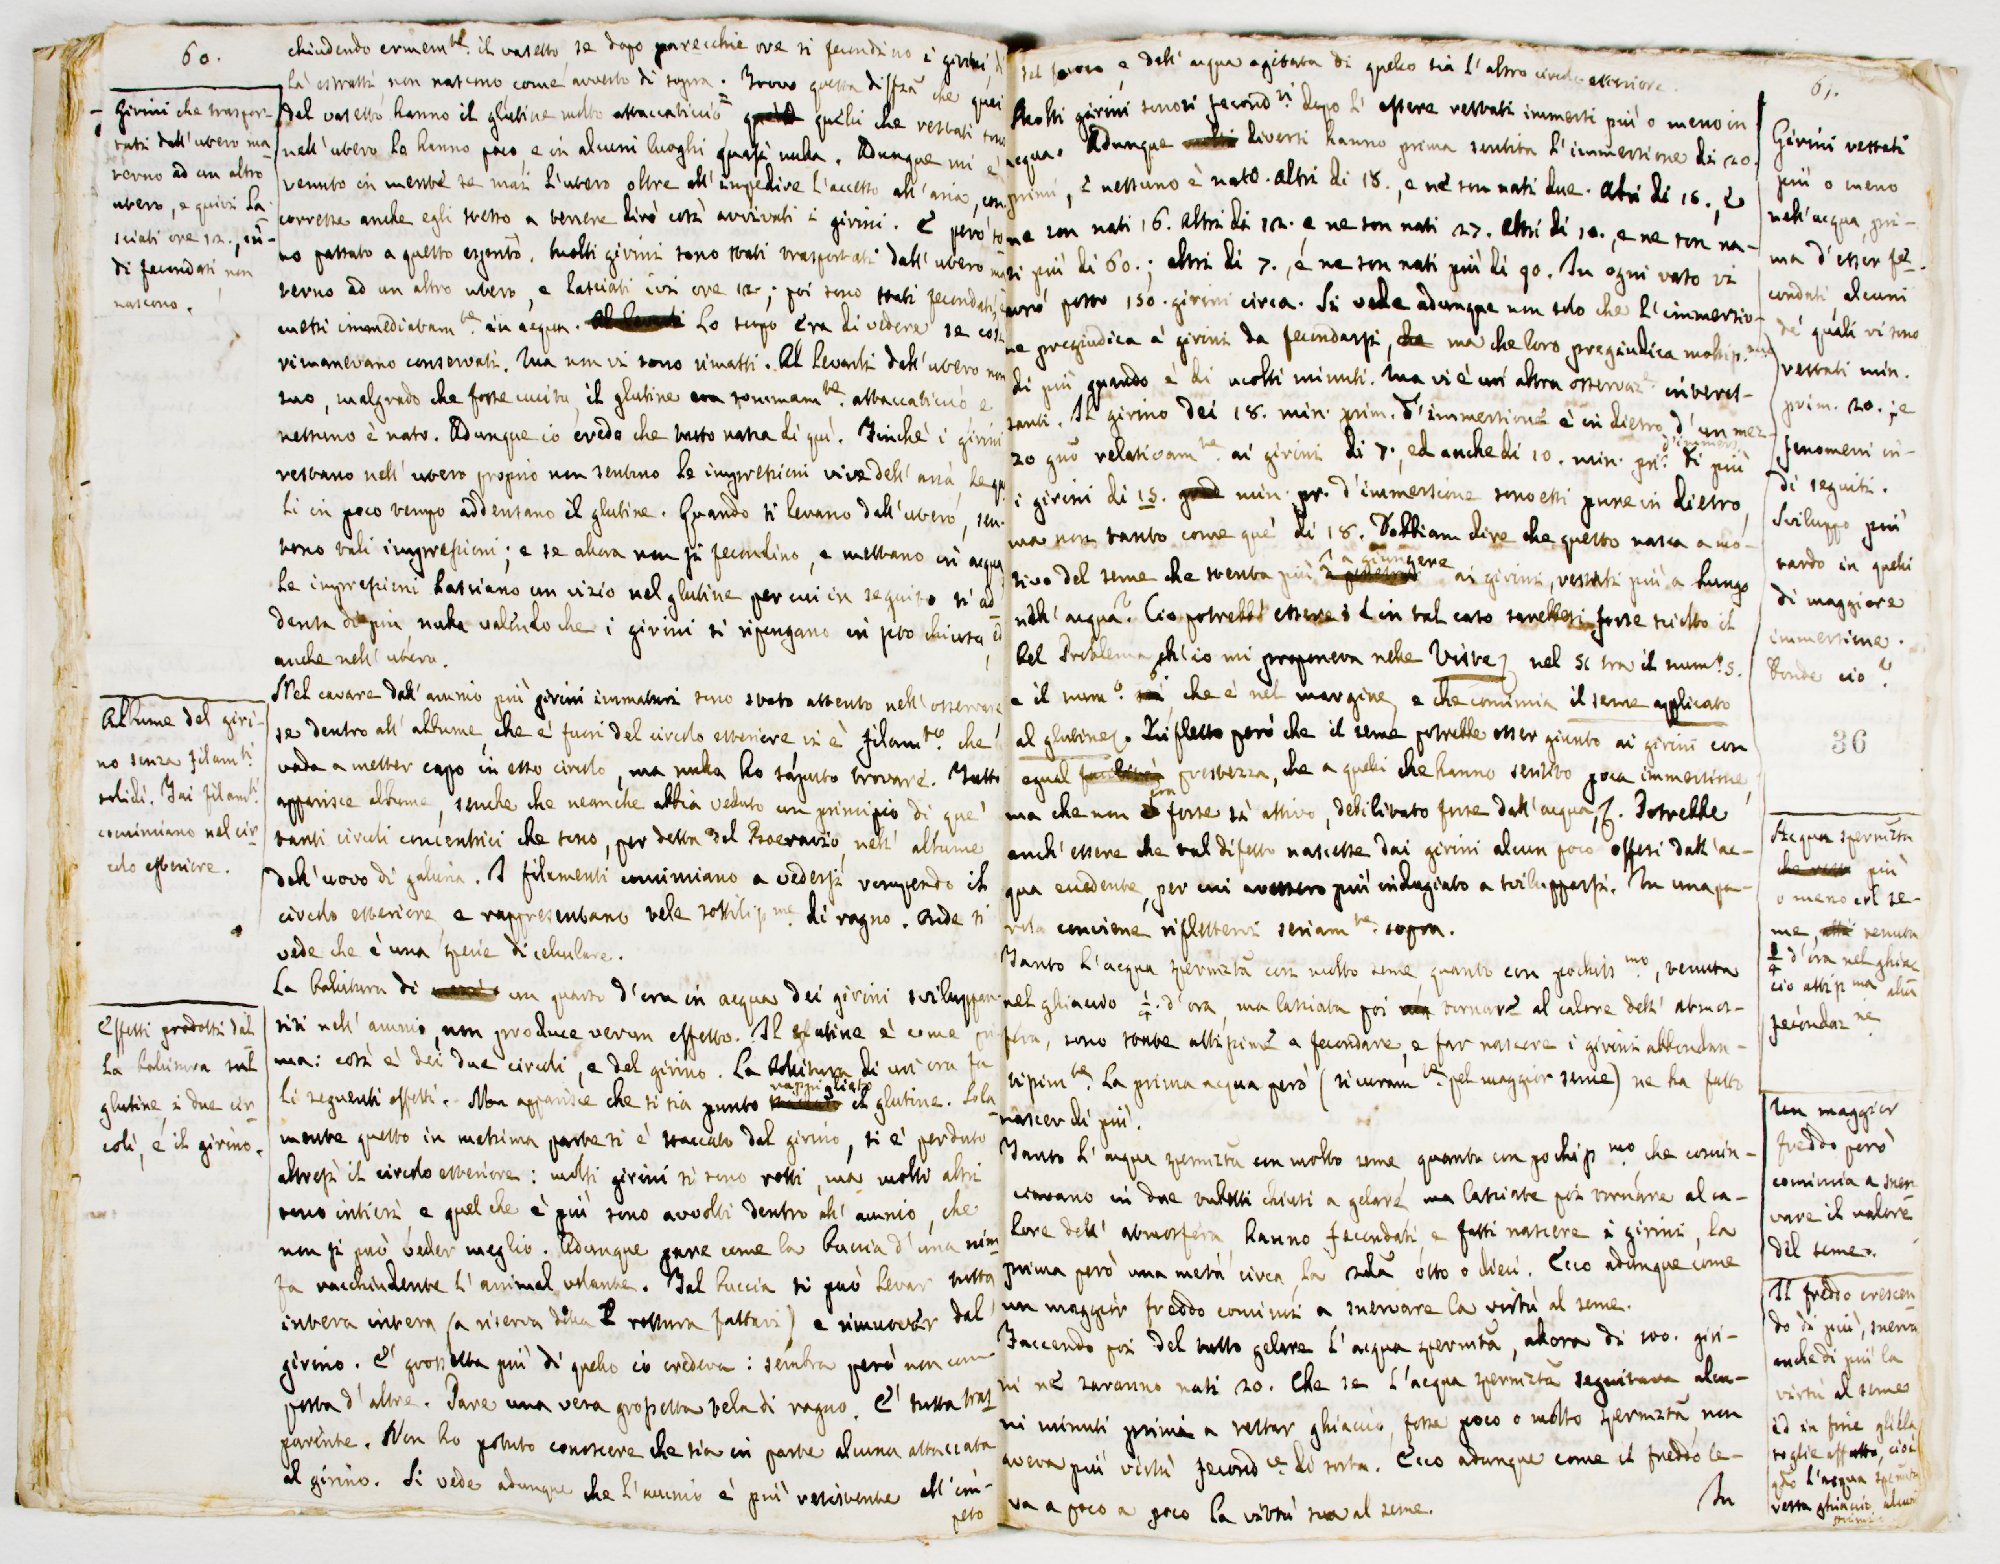 60.
chiudendo ermem.te il vasetto, se dopo parecchie ore si fecondino i girini, di
là estratti non nascono come avverto di sopra. Trovo questa diffza che quei
del vasetto hanno il glutine molto attaccaticcio, quelli che restati sono
nell'utero lo hanno poco, e in alcuni luoghi quasi nulla. Adunque mi è
venuto in mente se mai l'utero oltre all'impedire l'accesso all'aria, con-
corresse anche egli stesso a tenere dirò così avvivati i girini. E però so-
no passato a questo esperto. Molti girini sono stati trasportati dall'utero ma
terno ad un altro utero, e lasciati ivi ore 12.; poi sono stati fecondati, e
messi immediatam.te in acqua. Lo scopo era di vedere se così
rimanevano conservati. Ma non vi sono rimasti. Al levarli dall'utero non
suo, malgrado che fosse cucito, il glutine era sommam.te attaccaticcio e
nessuno è nato. Adunque io credo che tutto nasca di qui. Finché i girini
restano nell'utero proprio non sentono le impressioni vive dell'aria, le qua
li in poco tempo addensano il glutine. Quando si levano dall'utero, sen-
tono tali impressioni; e se allora non si fecondino, e mettano in acqua
le impressioni lasciano un vizio nel glutine per cui in seguito si ad
densa di più, nulla valendo che i girini si ripongano in sito chiuso, ed
anche nell'utero.
Nel cavare dall'amnio più girini immaturi sono stato attento nell'osservare
se dentro all'albume, che è fuori del circolo esteriore vi è filam.to che
vada a metter capo in esso circolo, ma nulla ho saputo trovare. Tutto
apparisce albume, senche che neanche abbia veduto un principio di que'
tanti circoli concentrici che sono, per detta del nell'albume
dell'uovo di gallina. I filamenti cominciano a vedersi rompendo il
circolo esteriore, e rappresentano tele sottiliss.me di ragno. Onde si
vede che è una specie di cellulare.
La bollitura di un quarto d'ora in acqua dei girini sviluppan-
tisi nell'amnio, non produce verun effetto. Il glutine è come pri
ma: così è dei due circoli, e del girino. La bollitura di un'ora fa
li seguenti effetti. Non apparisce che si sia punto rappigliato il glutine. Sola
mente questo in massima parte si è staccato dal girino, si è perduto
altresì il circolo esteriore: molti girini si sono rotti, ma molti altri
sono intieri, e quel che è più sono avvolti dentro all'amnio, che
non si può veder meglio. Adunque pare come la buccia d'una nin
fa racchiudente l'animal volante. Tal buccia si può levar tutta
intera intera (a riserva della rottura fattavi) e rimuover dal
girino. È grossetta più di quello io credeva: sembra però non com
posta d'altre. Pare una vera grossetta tela di ragno. È tutta tras
parente. Non ho potuto conoscere che sia in parte alcuna attaccata
al girino. Si vede adunque che l'amnio è più resistente all'im-
peto
Girini che traspor
tati dall'utero ma
terno ad un altro
utero, e quivi la
sciati ore 12., in-
di fecondati non
nascono.
Albume del giri-
no senza filam.ti
solidi. Tai filam.ti
cominciano nel cir
colo esteriore.
Effetti prodotti dal
la bollitura sul
glutine, i due cir
coli, e il girino.
del fuoco e dell'acqua agitata di quello sia l'altro circolo esteriore.
61.
Molti girini sonosi fecond.ti dopo l'essere restati immersi più o meno in
acqua. Adunque diversi hanno prima sentita l'immersione di 20.
primi, e nessuno è nato. Altri di 18., e ne son nati due. Altri di 16., e
ne son nati 16. Altri di 12. e ne son nati 27. Altri di 10., e ne son na-
ti più di 60.; altri di 7., e ne son nati più di 90. In ogni vaso vi
avrò posto 150. girini circa. Si vede adunque non solo che l'immersio-
ne pregiudica a' girini da fecondarsi, ma che loro pregiudica moltiss.mo
di più quando è di molti minuti. Ma vi è un'altra osservaz.e interes-
sante. Il girino dei 18. min. prim. d'immersione è in dietro d'un mez-
zo gno relativam.te ai girini di 7., ed anche di 10. min. pr. d'immers. Di più
i girini di 15. min. pr. d'immersione sono essi pure in dietro,
ma non tanto come que' di 18. Dobbiam dire che questo nasca a mo-
tivo del seme che stenta più a giungere ai girini, restati più a lungo
nell'acqua? Ciò potrebb'essere: e in tal caso sarebbesi forse sciolto il
bel Problema ch'io mi proponeva nelle Viste nel 51 tra il num.o 5.
e il num.o 6, che è nel margine, e che comincia il seme applicato
al glutine. Rifletto però che il seme potrebbe esser giunto ai girini con
egual prestezza, che a quelli che hanno sentito poca immersione,
ma che non era forse sì attivo, debilitato forse dall'acqua. Potrebbe
anch'essere che tal difetto nascesse dai girini alcun poco offesi dall'ac-
qua eccedente, per cui avessero più indugiato a svilupparsi. In una pa-
rola conviene riflettervi seriam.te sopra.
Tanto l'acqua spermtta con molto seme quanto con pochiss.mo, tenuta
nel ghiaccio 1/4 d'ora, ma lasciata poi tornare al calore dell'atmos-
fera, sono state attissime a fecondare, e far nascere i girini abbondan-
tissim.te. La prima acqua però (sicuram.te pel maggior seme) ne ha fatto
nascer di più.
Tanto l'acqua spermtta con molto seme quanto con pochiss.mo che comin-
ciavano in due vasetti chiusi a gelare, ma lasciate poi tornare al ca-
lore dell'atmosfera, hanno fecondati, e fatti nascere i girini, la
prima però una metà circa, la 2da otto o dieci. Ecco adunque come
un maggior freddo cominci a snervare la virtù al seme.
Facendo poi del tutto gelare l'acqua spermtta, allora di 100. giri-
ni ne saranno nati 20. Che se l'acqua spermtta seguitava alcu-
ni minuti primi a restar ghiaccio, fosse poco o molto spermtta, non
aveva più virtù fecond.ce di sorta. Ecco adunque come il freddo le-
va a poco a poco la virtù sua al seme.
In
Girini restati
più o meno
nell'acqua, pri-
ma d'esser fe-
condati alcuni
de' quali vi sono
restati min.
prim. 20.; e
fenomeni in-
di seguiti.
Sviluppo più
tardo in quelli
di maggiore
immersione.
Donde ciò?
36
Acqua spermtta
più
o meno col se-
me, tenuta
1/4 d'ora nel ghiac
cio attiss.ma alla
fecondaz.ne
Un maggior
freddo però
comincia a sner
vare il valore
del seme.
Il freddo crescen
do di più, snerva
anche di più la
virtù al seme
ed in fine gliela
toglie affatto, cioè
qdo l'acqua spermtta
resta ghiaccio alcuni